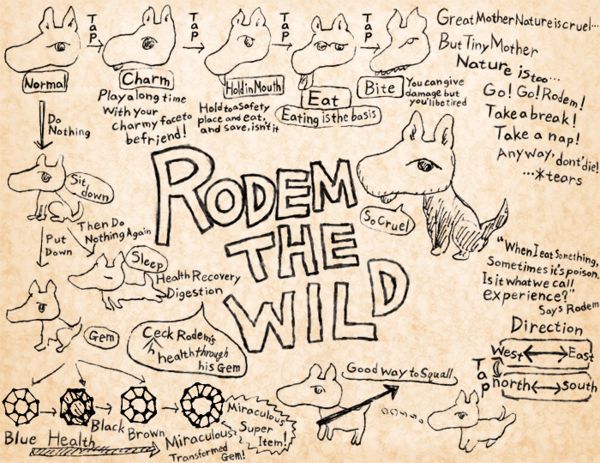 Tap
Tap
Tap
Tap
Normal
Charm
Play a long time
With your
charmy face to
befriend!
Hold in Mouth
Hold to a safety
place and eat,
and save, isn't it
Eat
Eating is the basis
Bite
You can give
damage but
you'll be tired
Great Mother Nature is cruel...
But Tiny Mother
Nature is too...
Go! Go! Rodem!
Take a break!
Take a nap!
Anyway, dont' die!
...*tears
Do
Nothing
Sit
down
Then Do
Nothing Again
Put
Down
Sleep
Health Recovery
Digestion
Gem
Ceck Rodem's
health through
his Gem
RODEM
THE
WILD
So Cruel
"When I eat Something,
Sometimes it's poison.
Is it what we call
experience?"
Says Rodem
Direction
West East
Tap
north South
Good way to Squall
Blue Health Black Brown Miraculous
Transformed Gem!
Miraculous
Super
Item!